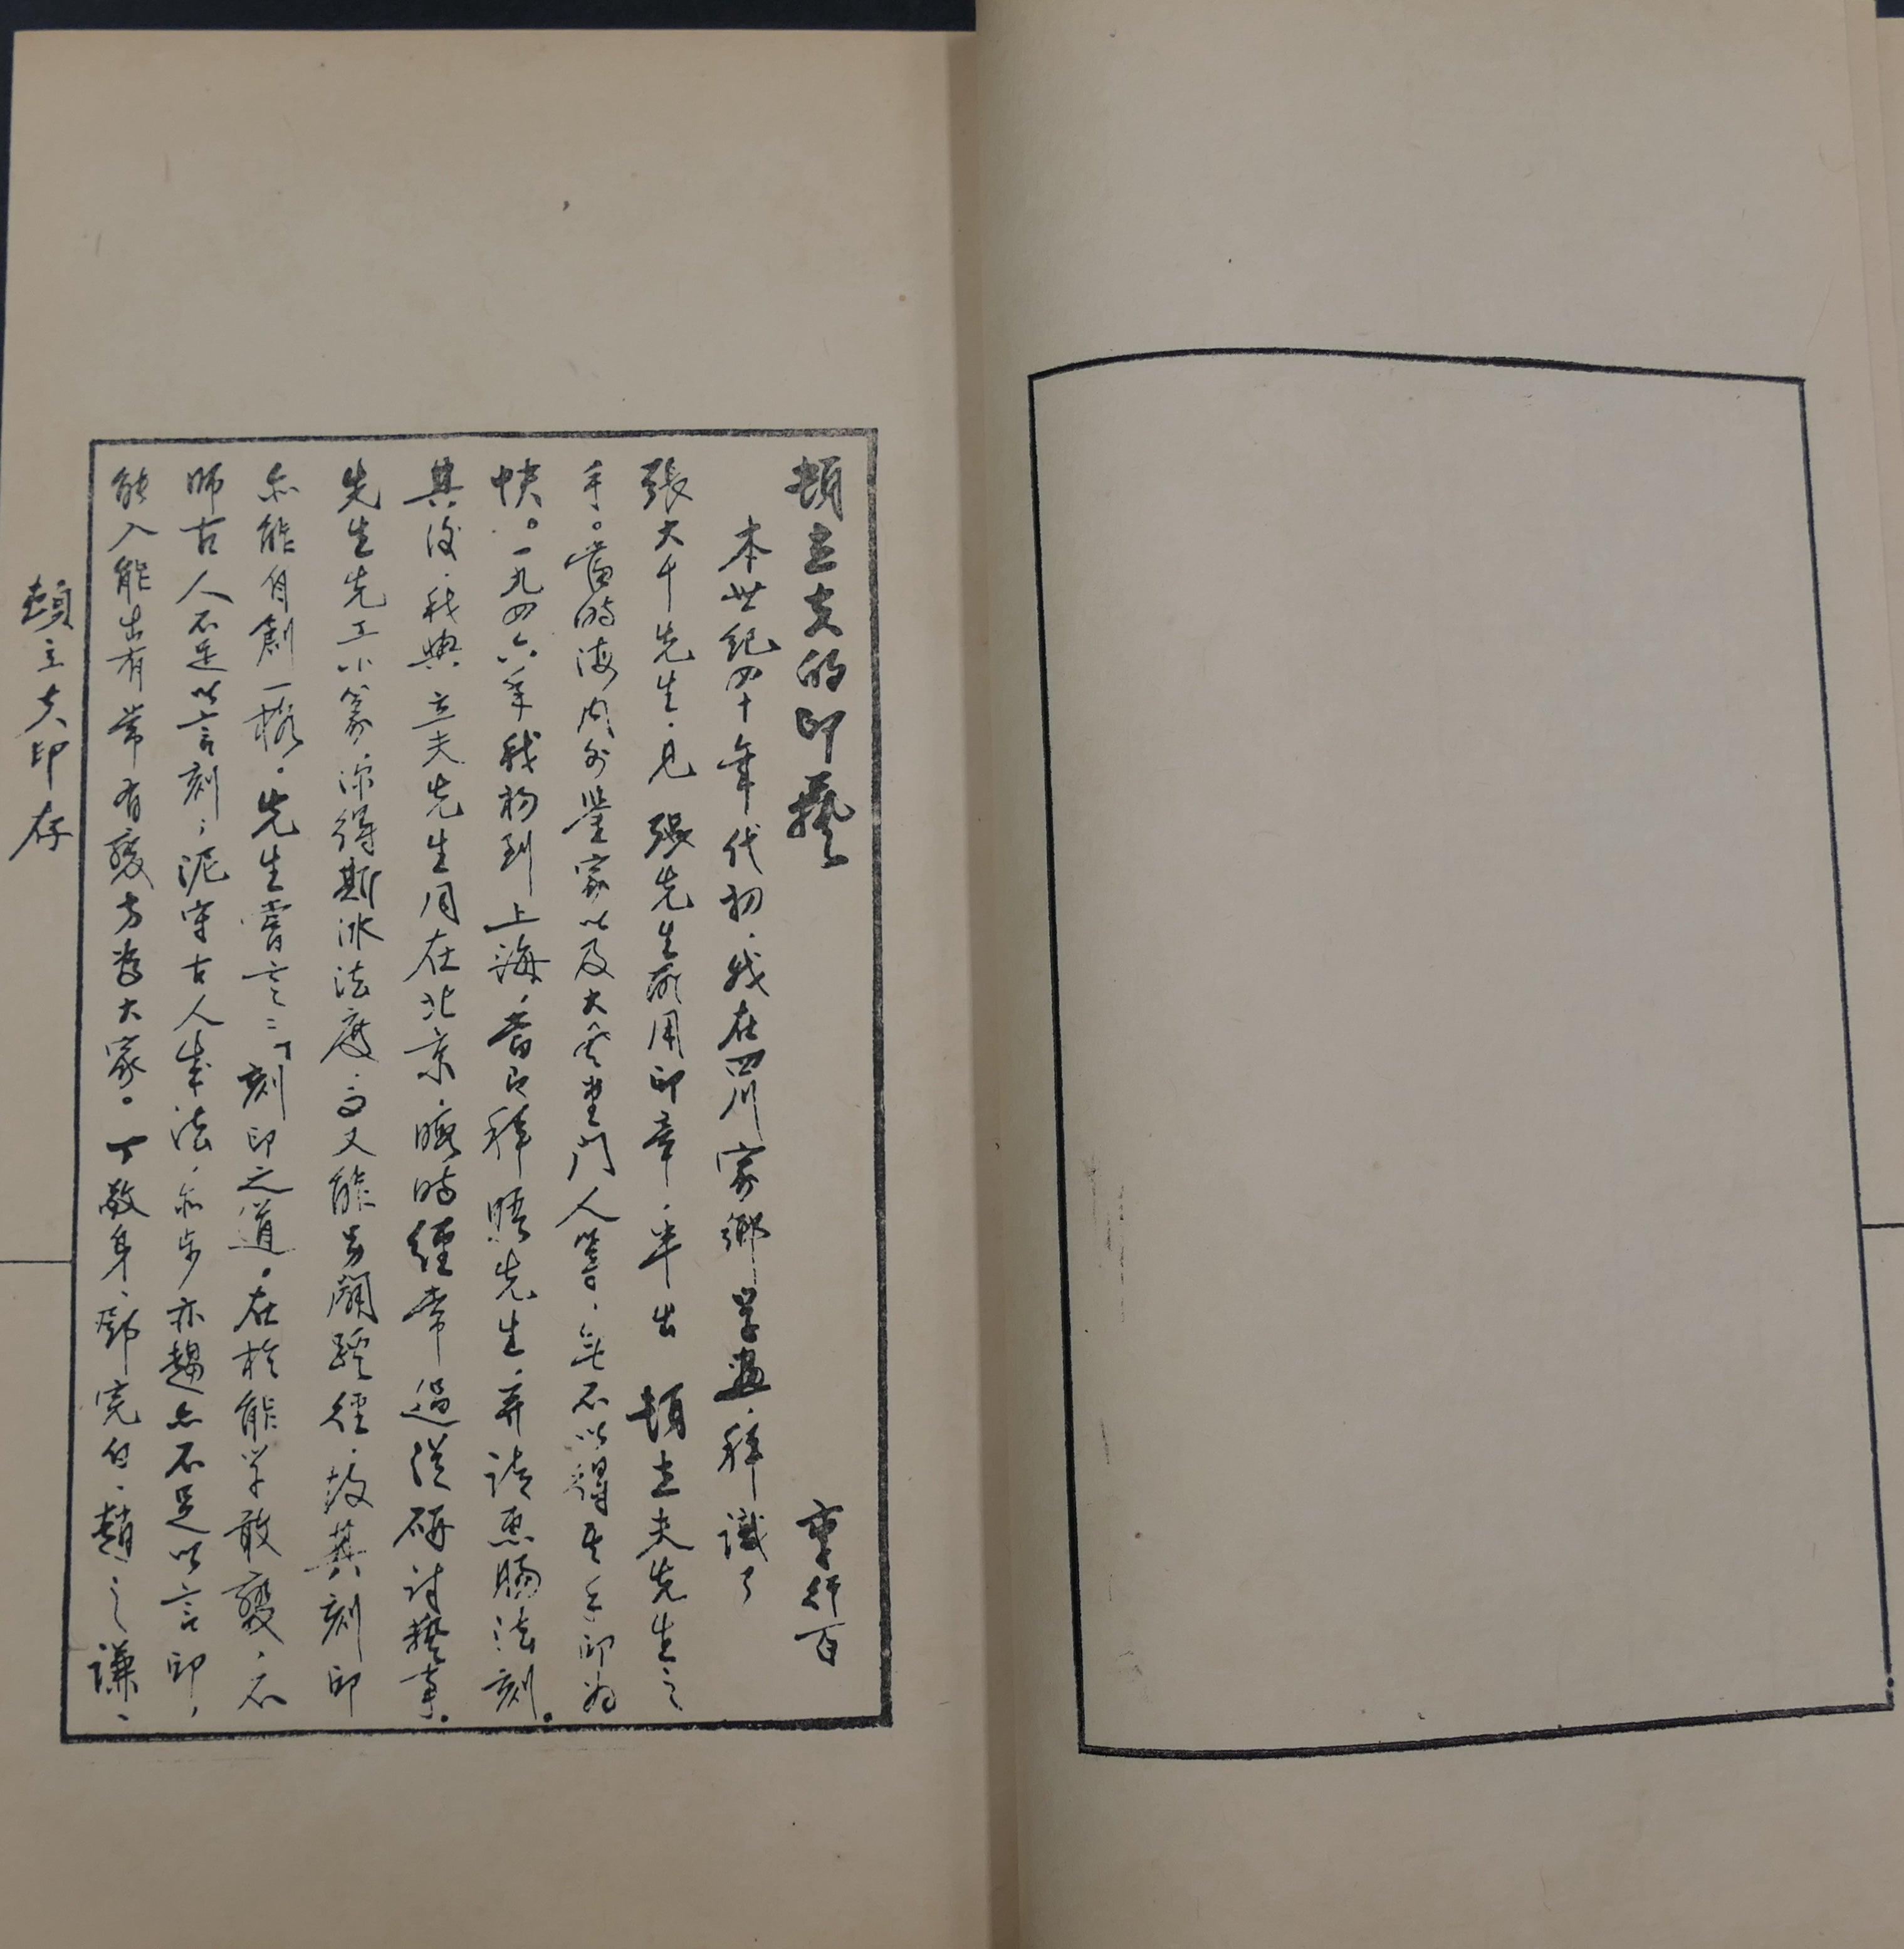 頓立夫的印藝 李行百
本世紀四十年代初，我在四川家鄉学畫，拜識了
張大千先生，見 張先生所用印章，半出 頓立夫先生之
手。當時海内外鑒家以及大風堂門人等，無不以得其手印为
快。一九四六年我初到上海，
其後，我與立夫先生同在北京，暇時經常過從研討藝事。
先生先工小篆，深得斯冰法度，而又能另闢蹊徑，故其刻印
亦能自創一格。先生嘗言：「刻印之道，在於能学敢變，不
師古人不足以言刻，泥守古人成法，亦步亦趨亦不足以言印，
能入能出有常有變方為大家。丁敬身、鄧完白、趙之謙、
頓立夫印存